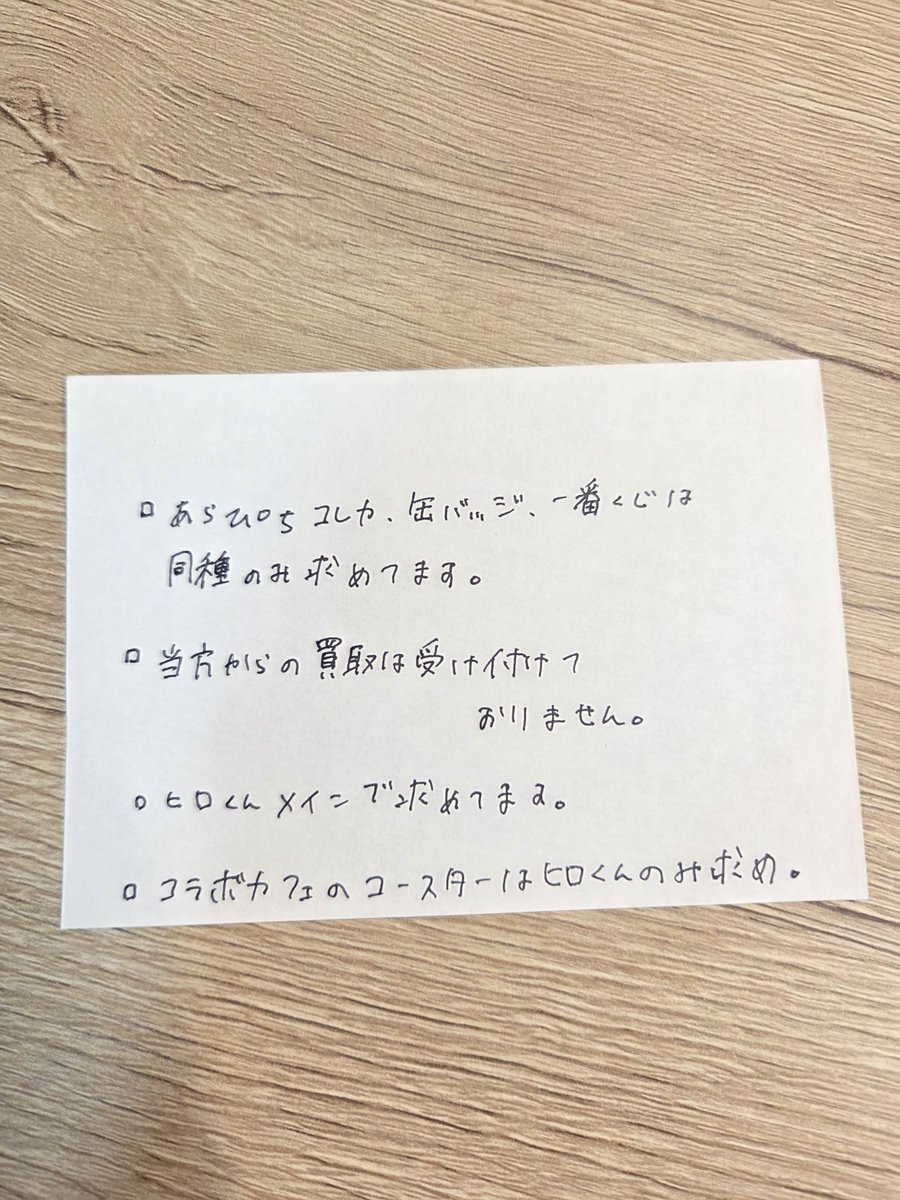 ▫ あらひろち コレカ、缶バッジ、一番くじは
同種のみ求めてます。
▫ 当方からの買取は受け付けて
おりません。
▫ ヒロくんメインで求めてます。
▫ コラボカフェのコースターはヒロくんのみ求め。